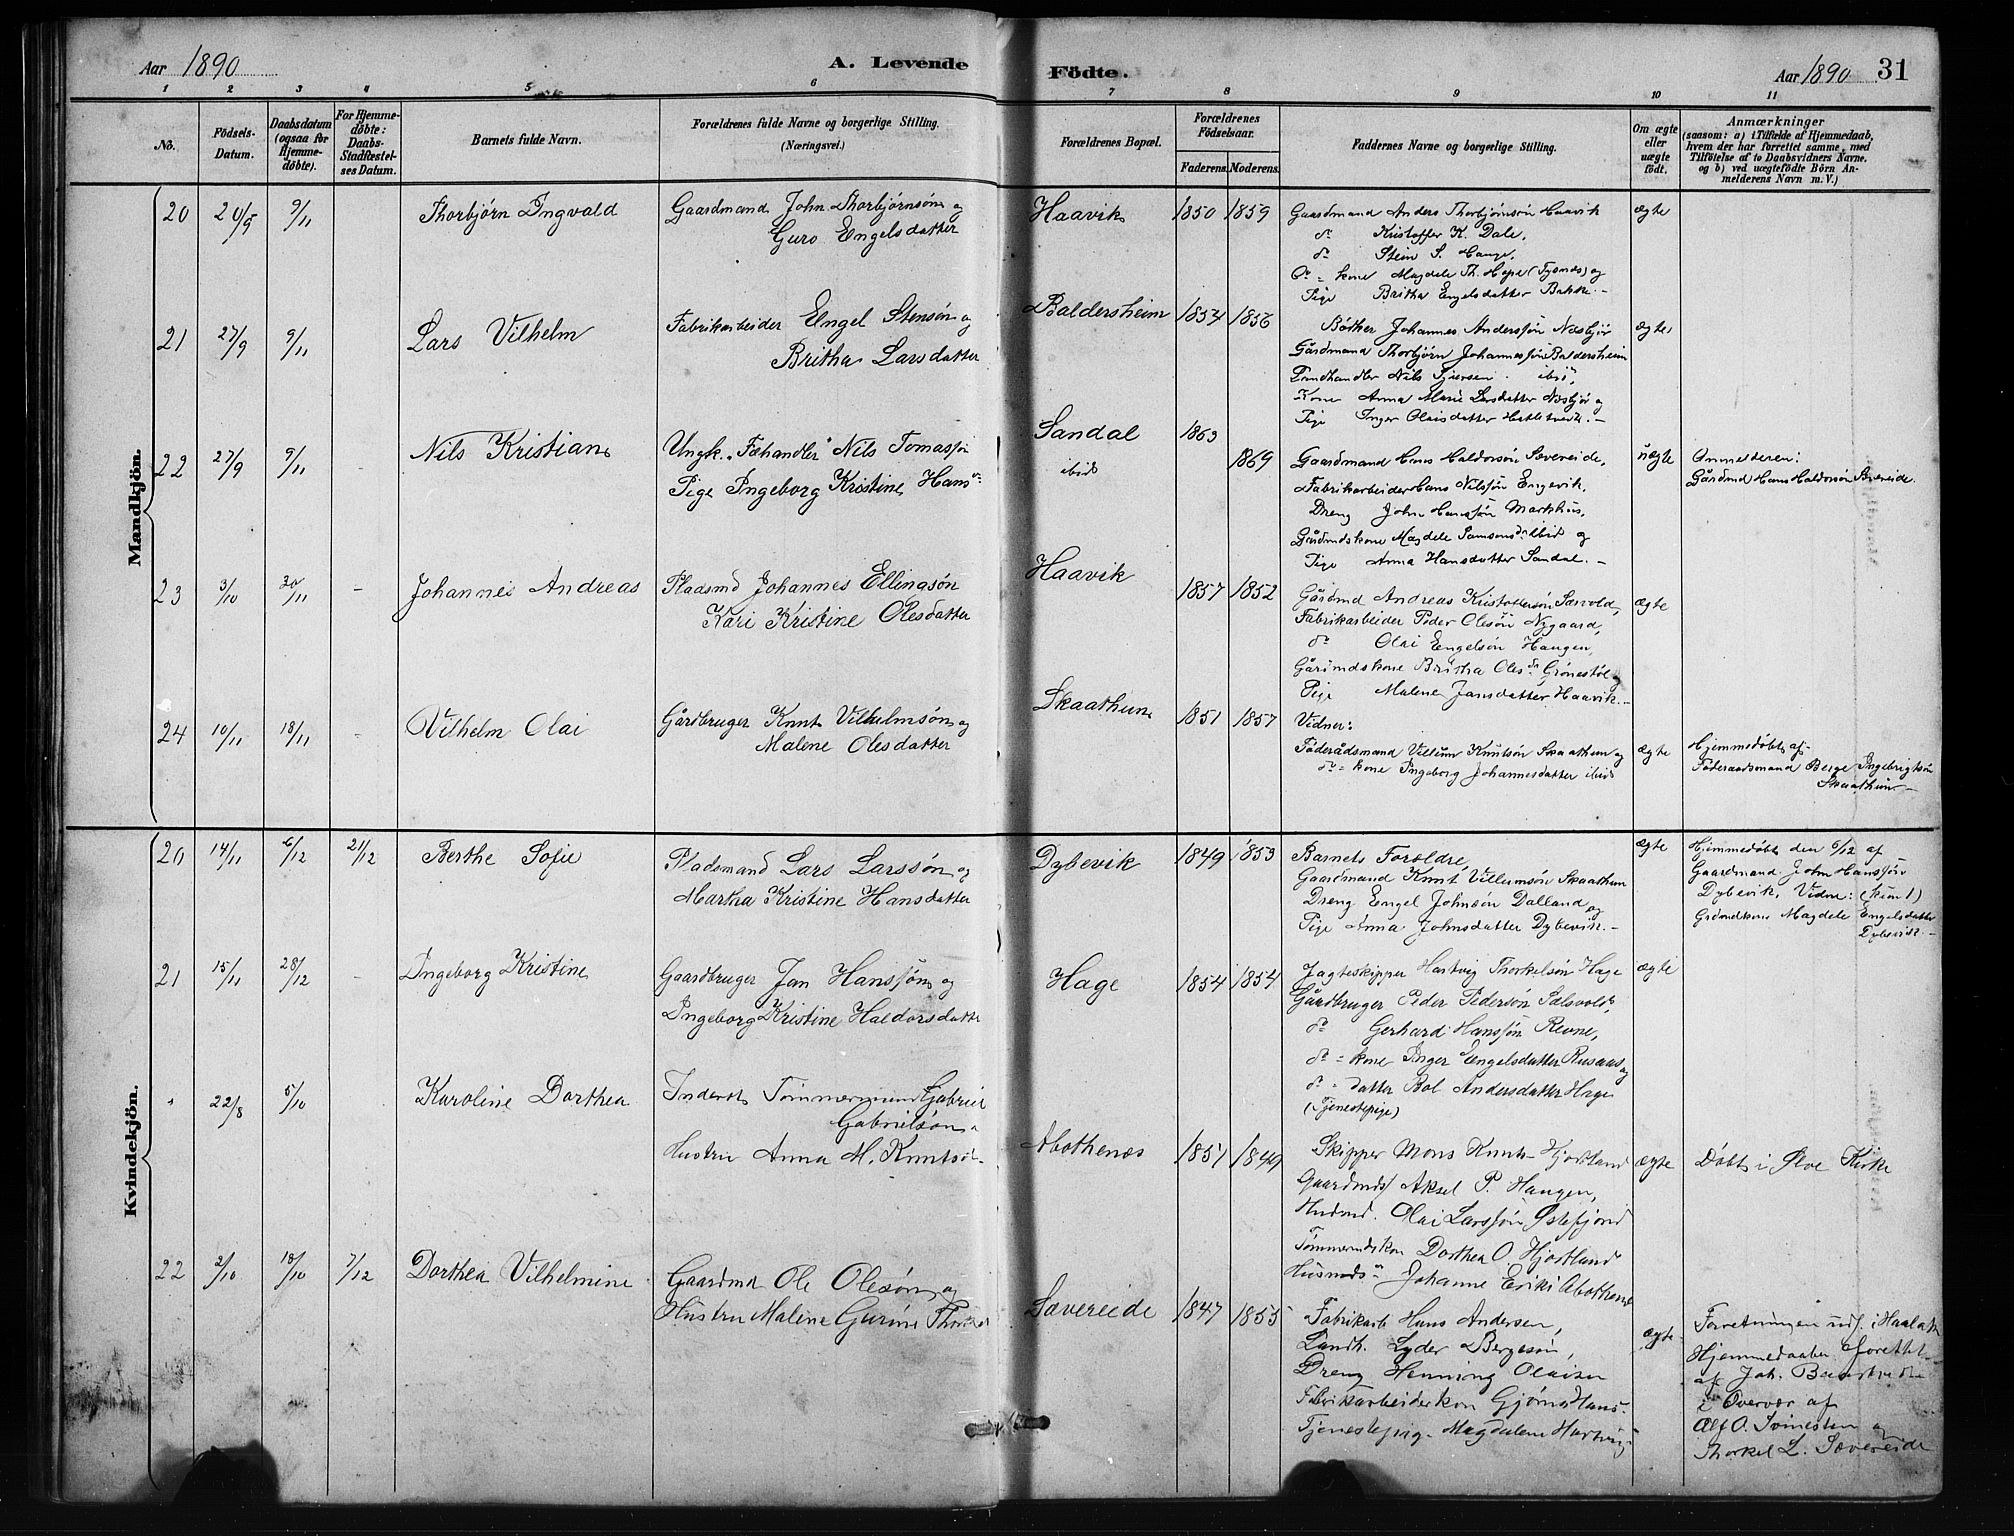 Aar 1890
A. Levende
Födte.
Aar 1890
31
1 2 3 4 5 6 7 8 9 10 11
No.
Födsels-Datum.
Daabsdatum (ogsaa for Hjemmedöbte).
For Hjemmedöbte: Daabs-Stadfæstelses Datum.
Barnets fulde Navn.
Forældrenes fulde Navne og borgerlige Stilling.
(Næringsvei.)
Forældrenes Bopæl.
Forældrenes Födselsaar.
Faderens. Moderens.
Faddernes Navne og borgerlige Stilling.
Om ægte eller uægte födt.
Anmærkninger
(saasom: a) i Tilfælde af Hjemmedaab, hvem der har forrettet samme, med Tilföielse af to Daabsvidners Navne, og b) ved uægtefödte Börn Anmelderens Navn m. V.)
Mandkjön.
20 20/9 9/11 Thorbjörn Ingvald
Gaardmand John Thorbjörnsön og
Guro Engelsdatter
Haavik 1850 1859
Gaardmand Anders Thorbjörnsön Haavik
do Kristoffer K. Dale,
do Stein S. Hauge,
do = kone Magdele Th. Hope (Tysnæs) og
Pige Britha Engelsdatter Bakke. -
ægte
21 27/9 9/11 Lars Vilhelm
Fabrikarbeider Engel Stensön og
Britha Larsdatter
Baldersheim 1854 1856
Johannes Anderssön
Gårdmand Thorbjörn Johannessön Baldersheim
Nils ibid,
Kone Anna Marie Larsdatter og
Pige Inger Olaisdatter
ægte
22 27/9 9/11 - Nils Kristian
Ungk. Fæhandler Nils Tomassön
Pige Ingeborg Kristine Hansdr
Sandal 1863
ibid 1869
Gaardmand Hans Haldorsön Sævereide,
Fabrikarbeider Hans Nilssön Engevik,
Dreng John Hanssön Markhus,
Gårdmdskone Magdele Samsonsdr ibid og
Pige Anna Hansdatter Sandal. -
uægte
Anmelderen:
Gårdmd Hans Haldorsön Sævereide.
23 3/10 30/11 - Johannes Andreas
Pladsmd Johannes Ellingsön
Kari Kristine Olesdatter
Haavik 1857 1852
Gårdmd Andreas Kristoffersön Sævold,
Fabrikarbeider Peder Olesön Nygaard,
do Olai Engelsön Haugen,
Gårdmdskone Britha Olesdr Grönestöl og
Pige Malene Jansdatter Haavik. -
ægte
24 10/11 18/11 - Vilhelm Olai
Gårdbruger Knut Vilhelmsön og
Malene Olesdatter
Skaathun 1851 1857
Vidner:
Föderådsmand Villum Knutsön Skaathun og
do = kone Ingeborg Johannesdatter ibid
ægte
Hjemmedöbt af
Föderaadsmand Berge Ingebrigtsön
Skaathun -
Kvindekjön.
20 14/11 6/12 21/12 Berthe Sofie
Pladsmand Lars Larssön og
Martha Kristine Hansdatter
Dybevik 1849 1853
Barnets Forældre,
Gaardmand Knut Villumsön Skaathun
Dreng Engel Johnsön Dalland og
Pige Anna Johnsdatter Dybevik. -
ægte
Hjemmedöbt den 6/12 af
Gaardmand John Hanssön
Dybevik, Vidne: (kun 1)
Grdmdkone Magdele Engelsdatter
Dybevik. -
21 15/11 28/12 - Ingeborg Kristine
Gaardbruger Jan Hanssön og
Ingeborg Kristine Haldorsdatter
Hage 1854 1854
Jagteskipper Hartvig Thorkelsön Hage
Gårdbruger Peder Pedersön Sælsvold,
do Gerhard Hanssön Revne,
do = kone Inger Engelsdatter Rusaas og
do = datter Bol Andersdatter Hage
(Tjenestepige)
ægte
" 22/8 5/10 Karoline Dorthea
Inderst Tömmermand Gabriel
Gabrielsön
Hustru Anna M. Knutsd.
Abothenæs 1851 1849
Skipper Mons Knuts. Hjortland
Gaardmds Aksel P. Haugen,
Husmd. Olai Larssön Östefjord
Tömmermdskon Dorthea O. Hjortland
Johanne Eriks Abothenæs
ægte
Döbt i Ölve Kirke
22 2/10 18/10 7/12 Dorthea Vilhelmine
Gaardmd Ole Olesön og
Hustru Malene Gurine
Sævereide 1847 1855
Fabrikarb Hans Andersen,
Landh. Lyder Bergesön,
Dreng Henning Olaisen
Fabrikarbeiderkon Gjöra Hans-
Tjenestepige Magdalene
ægte
Forretningen udf. i
Hjemmedaaben forrettet
af Joh.
i Overvær af
Alf O. og
Thorkel L. Sævereide